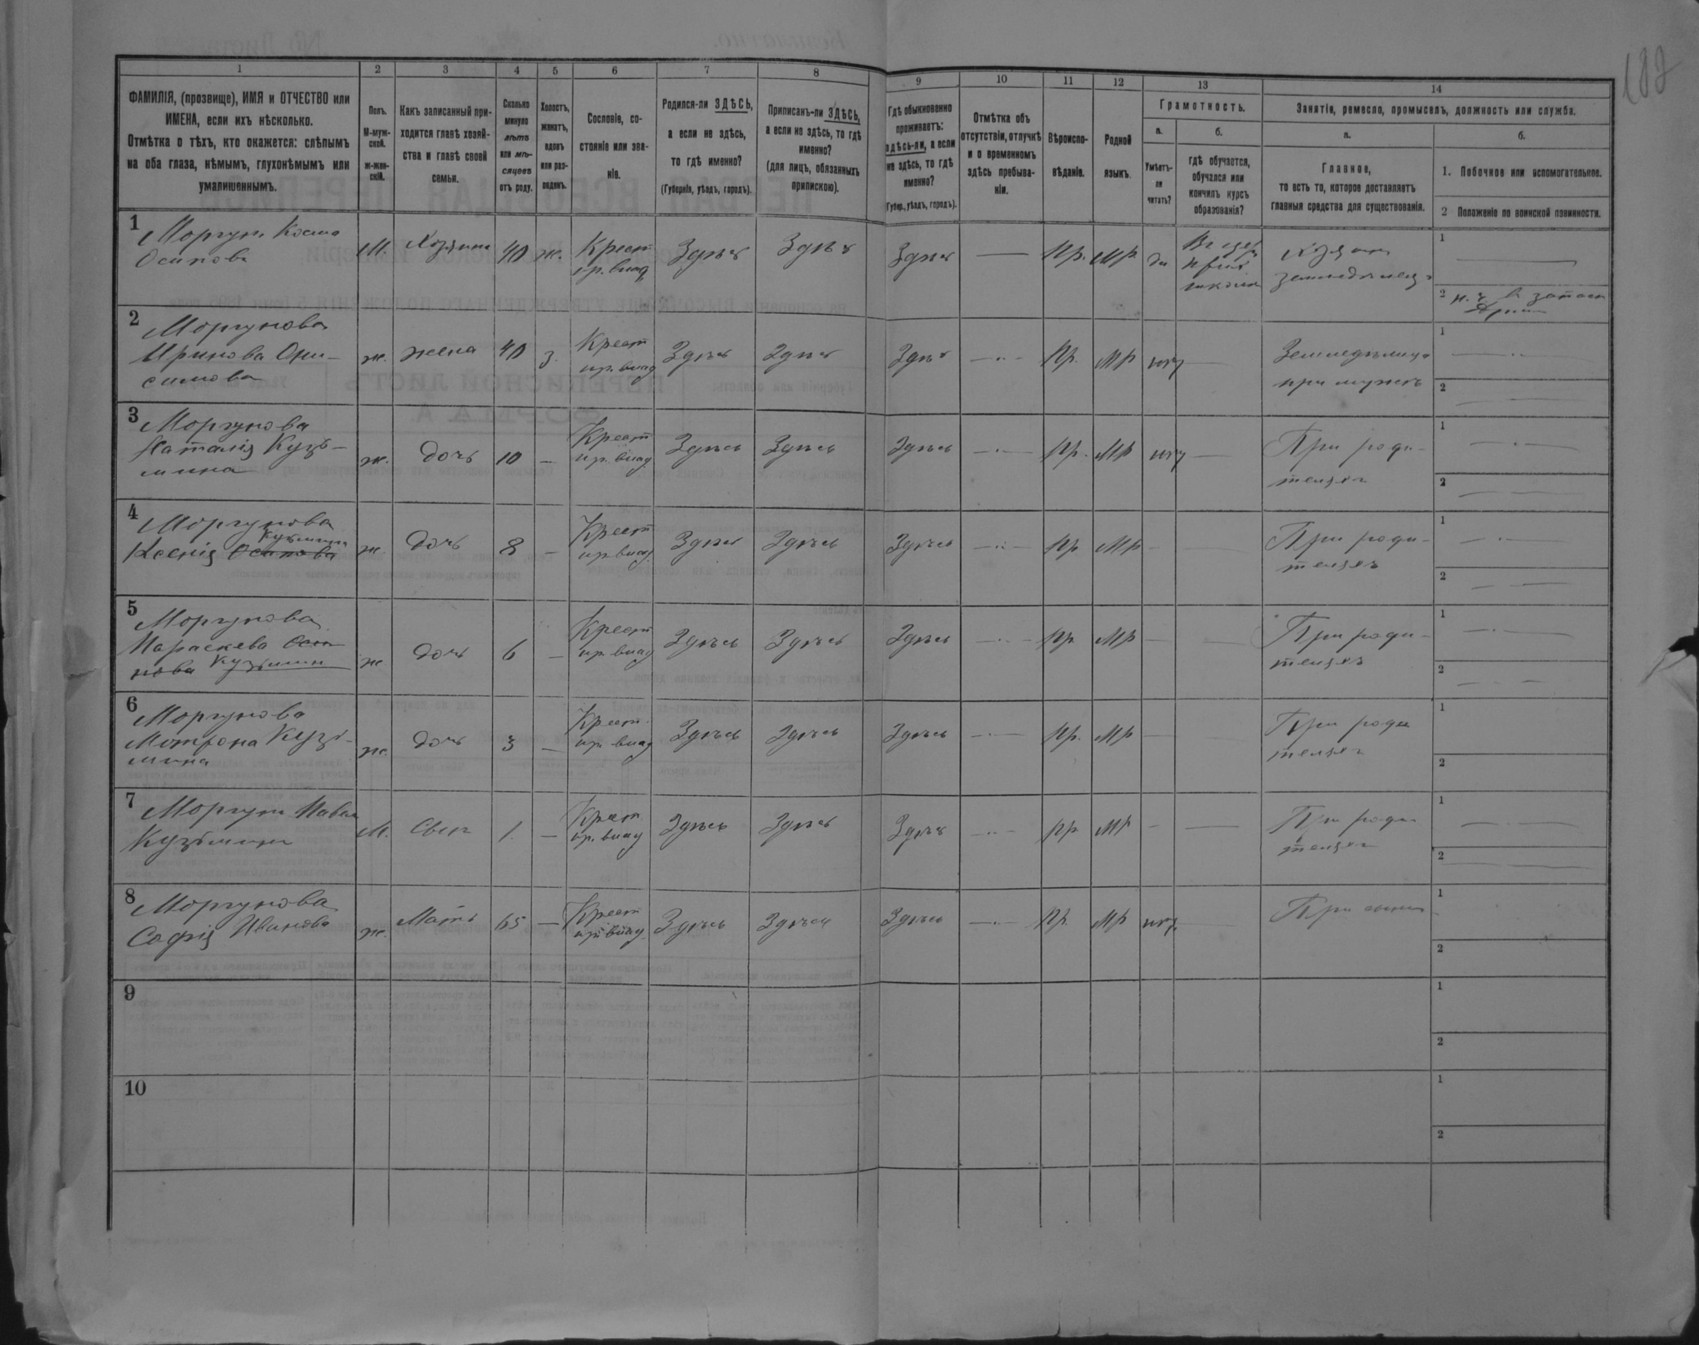 188
1 2 3 4 5 6 7 8 9 10 11 12 13 14
ФАМИЛІЯ, (прозвище), ИМЯ и ОТЧЕСТВО или
ИМЕНА, если ихъ нѣсколько.
Отмѣтка о тѣхъ, кто окажется: слѣпымъ
на оба глаза, нѣмымъ, глухонѣмымъ или
умалишеннымъ.
Полъ.
М-муж-
ской.
ж-жен-
скій.
Какъ записанный при-
ходится главѣ хозяй-
ства и главѣ своей
семьи.
Сколько
минуло
лѣтъ
или мѣ-
сяцевъ
отъ роду.
Холостъ,
женатъ,
вдовъ
или раз-
веденъ.
Сословіе, со-
стояніе или зва-
ніе.
Родился-ли ЗДѢСЬ,
а если не здѣсь,
то гдѣ именно?
(Губернія, уѣздъ, городъ).
Приписанъ-ли ЗДѢСЬ,
а если не здѣсь, то гдѣ
именно?
(для лицъ, обязанныхъ
припискою).
Гдѣ обыкновенно
проживаетъ:
здѣсь-ли, а если
не здѣсь, то гдѣ
именно?
(Губер., уѣздъ, городъ).
Отмѣтка объ
отсутствіи, отлучкѣ
и о временномъ
здѣсь пребыва-
ніи.
Вѣроиспо-
вѣданіе.
Родной
языкъ.
Грамотность.
а.
Умѣетъ-
ли
читать?
б.
гдѣ обучается,
обучался или
кончилъ курсъ
образованія?
Занятіе, ремесло, промыселъ, должность или служба.
а.
Главное,
то есть то, которое доставляетъ
главныя средства для существованія.
б.
1. Побочное или вспомогательное.
2 Положеніе по воинской повинности.
1
Моргун Косма
Осипова
М. Хозяинъ 40 ж. Крест Здѣсь Здѣсь Здѣсь — Пр. МР да
Хозяин
земледѣлецъ
1
2
2
Моргунова
Ирина Они-
симова
ж. жена 40 з. Крест Здѣсь Здѣсь Здѣсь Пр. МР нѣт
при мужѣ
1
2
3
Моргунова
Наталія Кузь-
мина
ж. дочь 10 — Крест Здѣсь Здѣсь Здѣсь Пр. МР нѣт
При роди-
теляхъ
1
2
4
Моргунова
Кузьмина
Ксенія Осипова
ж. дочь 8 — Крест Здѣсь Здѣсь Здѣсь Пр МР
При роди-
теляхъ
1
2
5
Моргунова
Параскева Оси
пова Кузьмин
ж дочь 6 — Крест Здѣсь Здѣсь Здѣсь Пр МР
При роди-
теляхъ
1
2
6
Моргунова
Мотрона Кузь-
мина
ж дочь 3 — Крест. Здѣсь Здѣсь Здѣсь Пр. МР
При роди
теляхъ
1
2
7
Моргун Павел
Кузьмин
М. Сынъ 1. — Крест Здѣсь Здѣсь Здѣсь Пр МР
При роди
теляхъ
1
2
8
Моргунова
Софія Иванова
ж. Мать 65 — Крест Здѣсь Здѣсь Здѣсь Пр. МР нѣт.
При сынѣ
1
2
9
1
2
10
1
2